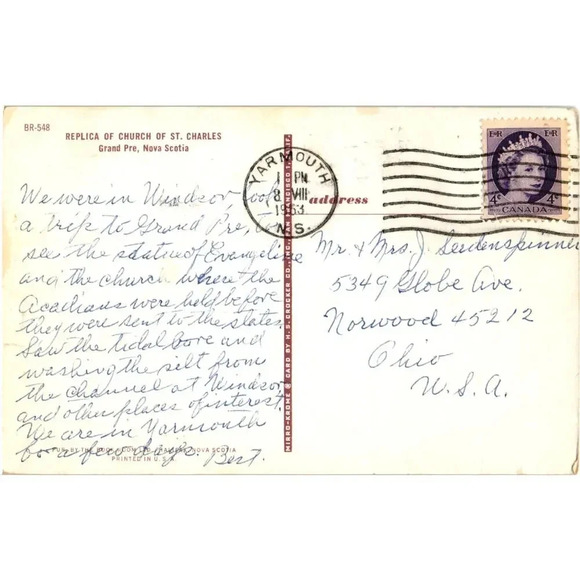 BR-548
REPLICA OF CHURCH OF ST. CHARLES
Grand Pre, Nova Scotia
We were in Windsor, took
a trip to Grand Pre,
see the statue of Evangeline
and the church where the
Acadians were held before
they were sent to the states.
Saw the tidal bore and
washing the silt from
the channel at Windsor,
and other places of interest.
We are in Yarmouth
for a few days. Bert.
PRINTED IN U.S.A.
MIRRO-KROME ® CARD BY H. S. CROCKER CO., INC.
YARMOUTH
1 PM
8 VIII
1963
N.S.
address
E II R E II R
4c 4c
CANADA
Mr & Mrs J. Seidenspinner
5349 Globe Ave.
Norwood 45212
Ohio
U.S.A.